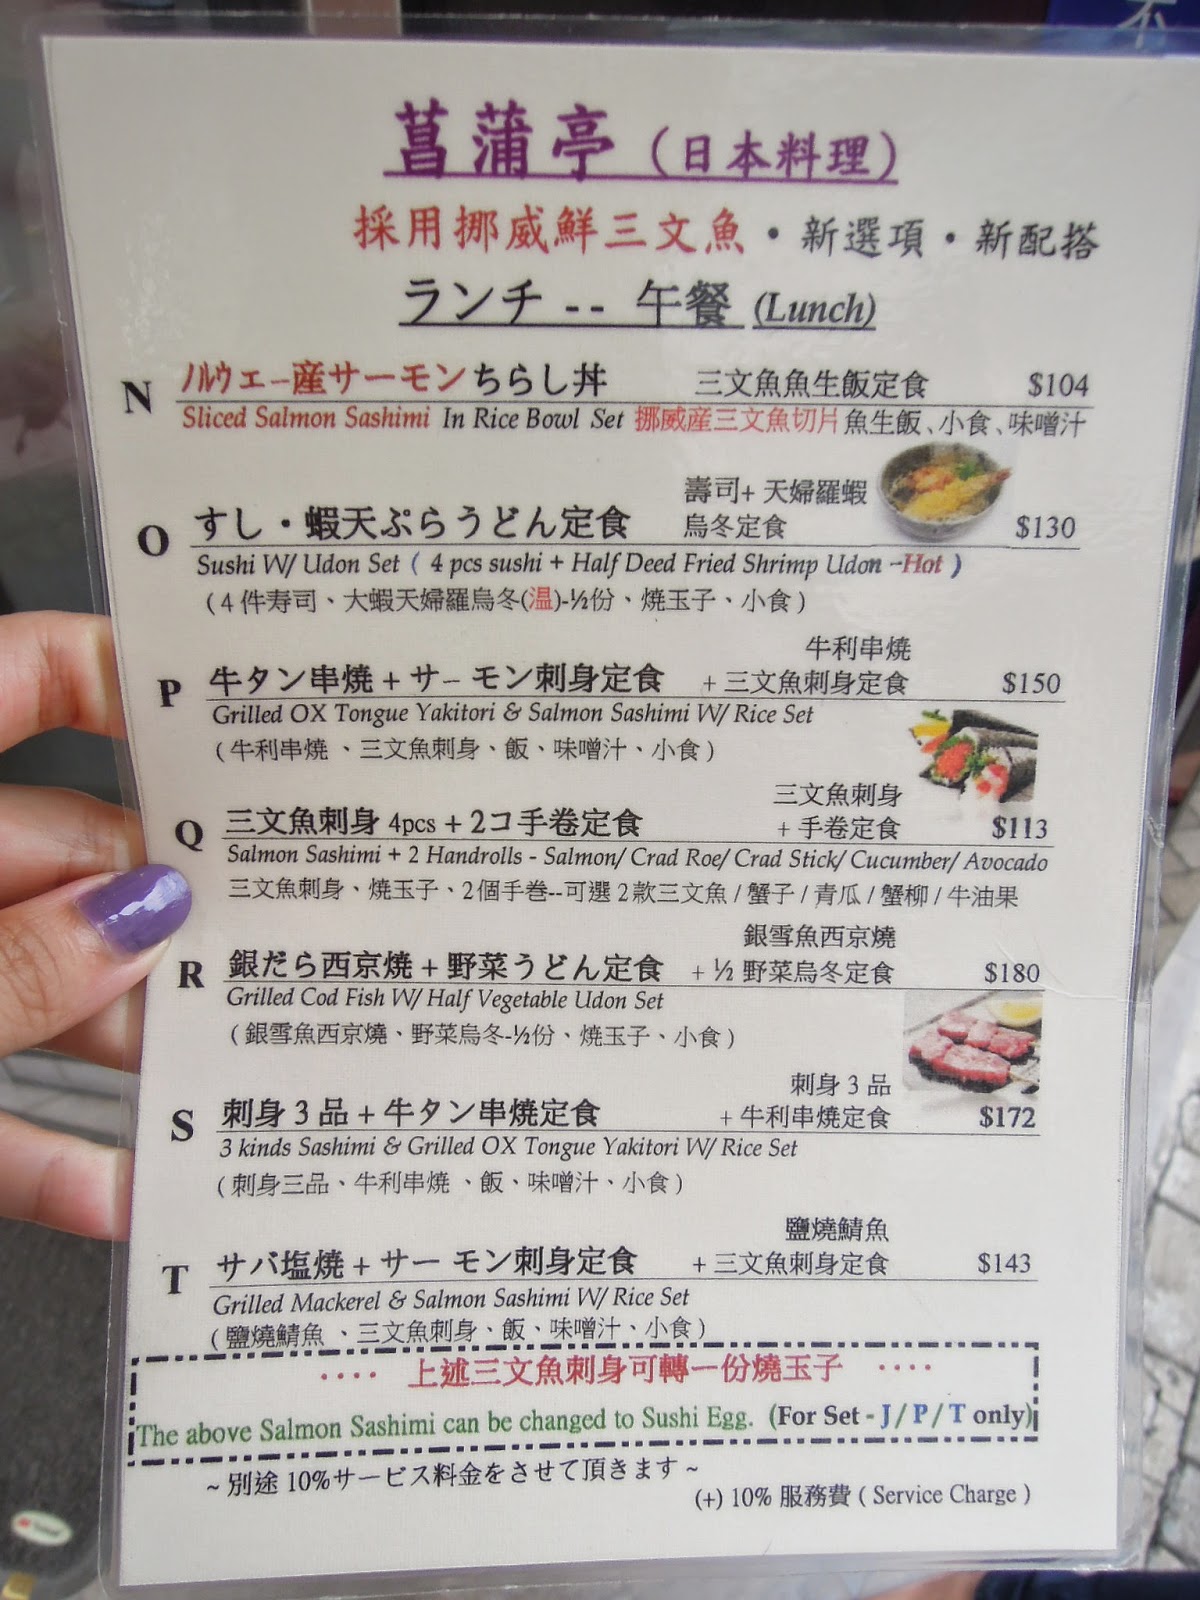 不
菖蒲亭（日本料理）
採用挪威鮮三文魚・新選項・新配搭
ランチ -- 午餐 (Lunch)
N ノルウェー産サーモンちらし丼 三文魚魚生飯定食 $104
Sliced Salmon Sashimi In Rice Bowl Set 挪威産三文魚切片魚生飯、小食、味噌汁
壽司+ 天婦羅蝦
O すし・蝦天ぷらうどん定食 烏冬定食 $130
Sushi W/ Udon Set ( 4 pcs sushi + Half Deed Fried Shrimp Udon -Hot )
( 4 件寿司、大蝦天婦羅烏冬(温)-½份、燒玉子、小食 )
牛利串燒
P 牛タン串焼 + サーモン刺身定食 + 三文魚刺身定食 $150
Grilled OX Tongue Yakitori & Salmon Sashimi W/ Rice Set
( 牛利串燒 、三文魚刺身、飯、味噌汁、小食 )
三文魚刺身
Q 三文魚刺身 4pcs + 2コ手卷定食 + 手卷定食 $113
Salmon Sashimi + 2 Handrolls - Salmon/ Crad Roe/ Crad Stick/ Cucumber/ Avocado
三文魚刺身、燒玉子、2個手巻--可選 2款三文魚 / 蟹子 / 青瓜 / 蟹柳 / 牛油果
銀雪魚西京燒
R 銀だら西京焼 + 野菜うどん定食 + ½ 野菜烏冬定食 $180
Grilled Cod Fish W/ Half Vegetable Udon Set
( 銀雪魚西京燒、野菜烏冬-½份、燒玉子、小食 )
刺身 3 品
S 刺身 3 品 + 牛タン串焼定食 + 牛利串燒定食 $172
3 kinds Sashimi & Grilled OX Tongue Yakitori W/ Rice Set
( 刺身三品、牛利串燒 、飯、味噌汁、小食 )
鹽燒鯖魚
T サバ塩焼 + サーモン刺身定食 + 三文魚刺身定食 $143
Grilled Mackerel & Salmon Sashimi W/ Rice Set
( 鹽燒鯖魚 、三文魚刺身、飯、味噌汁、小食 )
···· 上述三文魚刺身可轉一份燒玉子 ····
The above Salmon Sashimi can be changed to Sushi Egg. (For Set - J / P / T only)
~ 別途 10%サービス料金をさせて頂きます ~
(+) 10% 服務費 ( Service Charge )